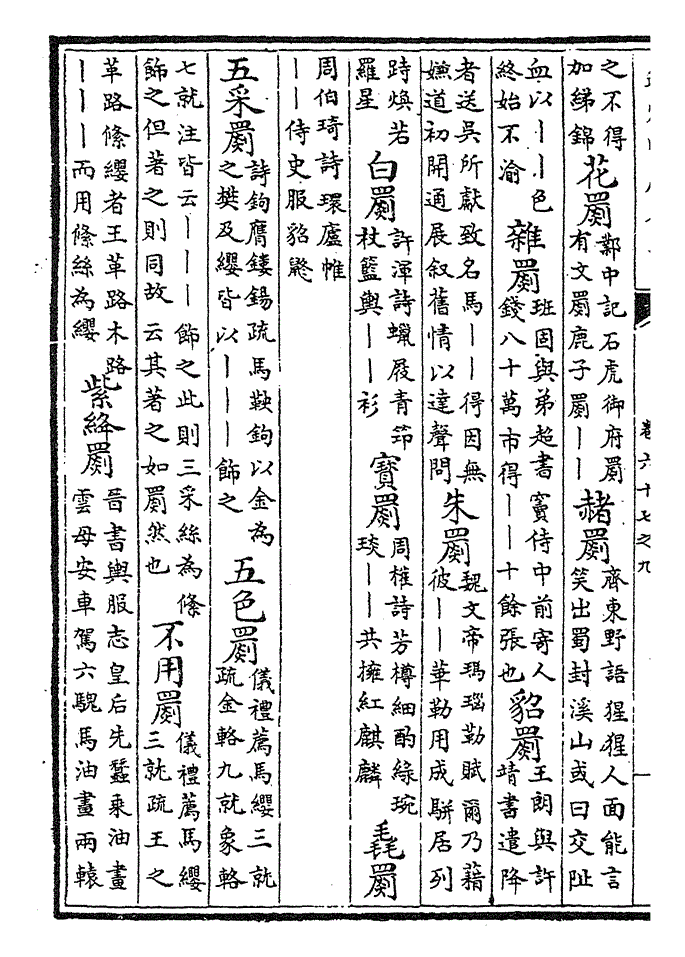 卷六十七之九
一
之不得
加綈錦
花罽
鄴中記石虎御府罽
有文罽鹿子罽丨丨
赭罽
齊東野語猩猩人面能言
笑出蜀封溪山或曰交阯
血以丨丨色
終始不渝
雜罽
班固與弟超書竇侍中前寄人
錢八十萬市得丨丨十餘張也
貂罽
王朗與許
靖書遣降
者送吳所獻致名馬丨丨得因無
嫌道初開通展叙舊情以達聲問
朱罽
魏文帝瑪瑙勒賦爾乃藉
彼丨丨華勒用成駢居列
跱煥若
羅星
白罽
許渾詩蠟屐青筇
杖籃輿丨丨衫
寶罽
周權詩芳樽細酌綠琬
琰丨丨共擁紅麒麟
毳罽
周伯琦詩環廬帷
丨丨侍史服貂
五采罽
詩鉤膺鏤鍚疏馬鞅鉤以金為
之樊及纓皆以丨丨丨飾之
五色罽
儀禮薦馬纓三就
疏金輅九就象輅
七就注皆云丨丨丨飾之此則三采絲為絛
飾之但著之則同故云其著之如罽然也
不用罽
儀禮薦馬纓
三就疏王之
革路絛纓者王革路木路
丨丨丨而用絛絲為纓
紫絳罽
晉書輿服志皇后先蠶乘油畫
雲母安車駕六騩馬油畫兩轅